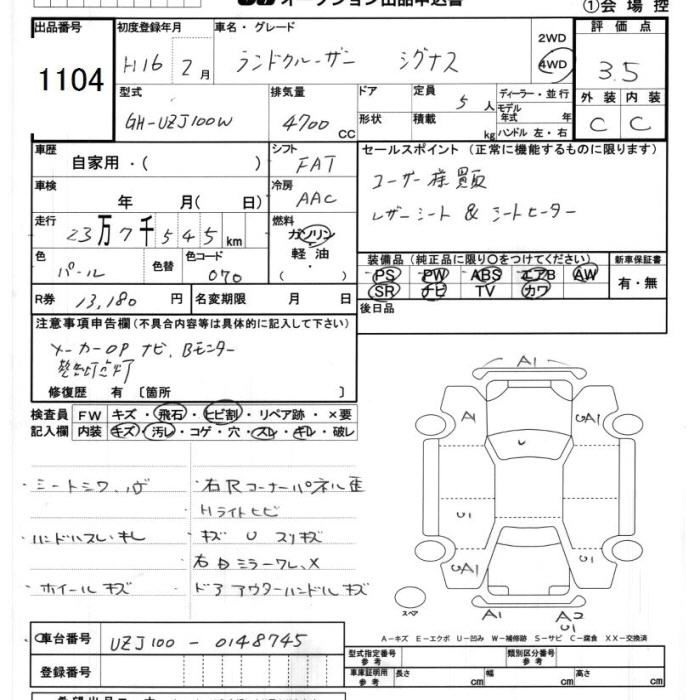 オークション出品申込書
①会場控
出品番号
1104
初度登録年月
H16 2月
車名・グレード
ランドクルーザー シグナス
2WD
4WD
評価点
3.5
外装 内装
C C
型式
GH-UZJ100W
排気量
4700 CC
ドア
形状
定員
5人
積載
kg
ディーラー・並行
モデル年式 年
ハンドル 左・右
車歴
自家用・( )
シフト
FAT
車検
年 月( 日)
冷房
AAC
走行
23万7千545km
燃料
ガソリン
軽油
・( )
色
パール
色替
色コード
070
R券 13,180 円
名変期限 月 日
セールスポイント (正常に機能するものに限ります)
ユーザー様買取
レザーシート & シートヒーター
装備品 (純正品に限り○をつけてください)
PS PW ABS エアB AW
SR ナビ TV カワ
新車保証書
有・無
後日品
注意事項申告欄 (不具合内容等は具体的に記入して下さい)
メーカーOP ナビ、Bモニター
修復歴 有 〔箇所 〕
検査員記入欄
FW キズ・飛石・ヒビ割・リペア跡・×要
内装 キズ・汚レ・コゲ・穴・スレ・キレ・破レ
・シートシワ、
・右Rコーナーパネル歪
Hライトヒビ
・ハンドルスレ、キレ
キズ U スリキズ
右Dミラーワレ、X
・ホイールキズ
ドアアウターハンドルキズ
A1
A1
UA1
U
U1
UA1
UA1
スペア
A1
A2
U1
A－キズ E－エクボ U－凹み W－補修跡 S－サビ C－腐食 XX－交換済
車台番号
UZJ100 - 0148745
登録番号
型式指定番号 参考
類別区分番号 参考
車庫証明用 参考
長さ cm
幅 cm
高さ cm